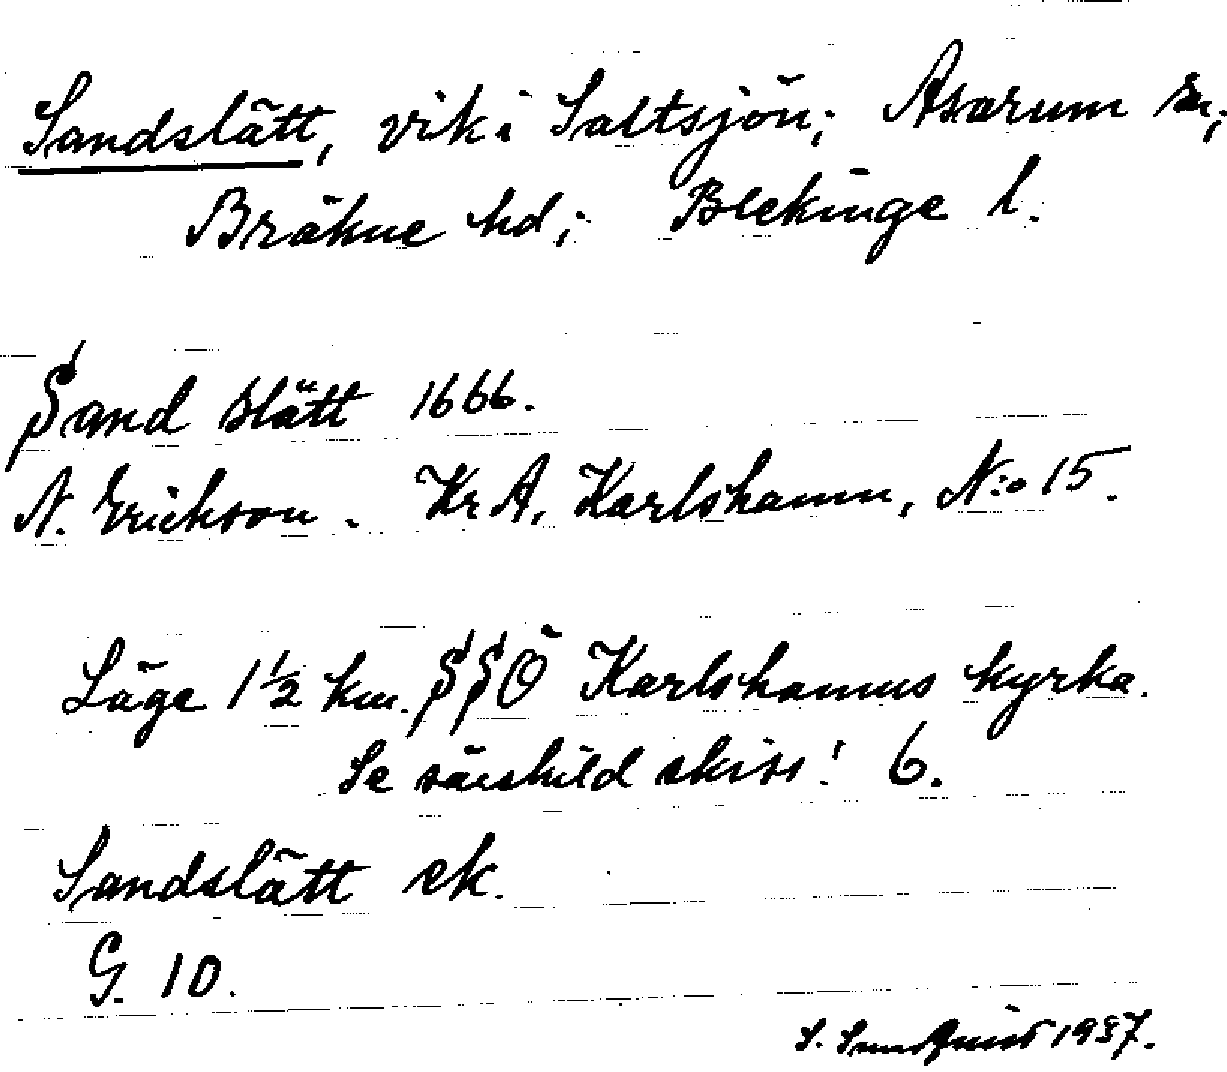 Sandslätt, vik i Saltsjön; Asarum sn;
Bräkne hd; Blekinge l.
Sand slätt 1666.
N. Erickson. Kr A, Karlshamn, N:o 15.
Läge 1½ km. SSÖ Karlshamns kyrka.
Se särskild skiss! 6.
Sandslätt ek.
G. 10.
S. Sundquist 1937.